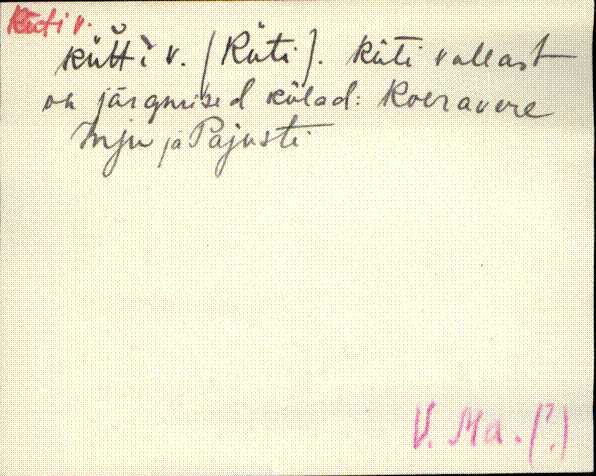 Küti v.
kütti v. (Küti). Küti vallast
on järgmised külad: Koeravere
Inju ja Pajusti
V. Ma. (?)